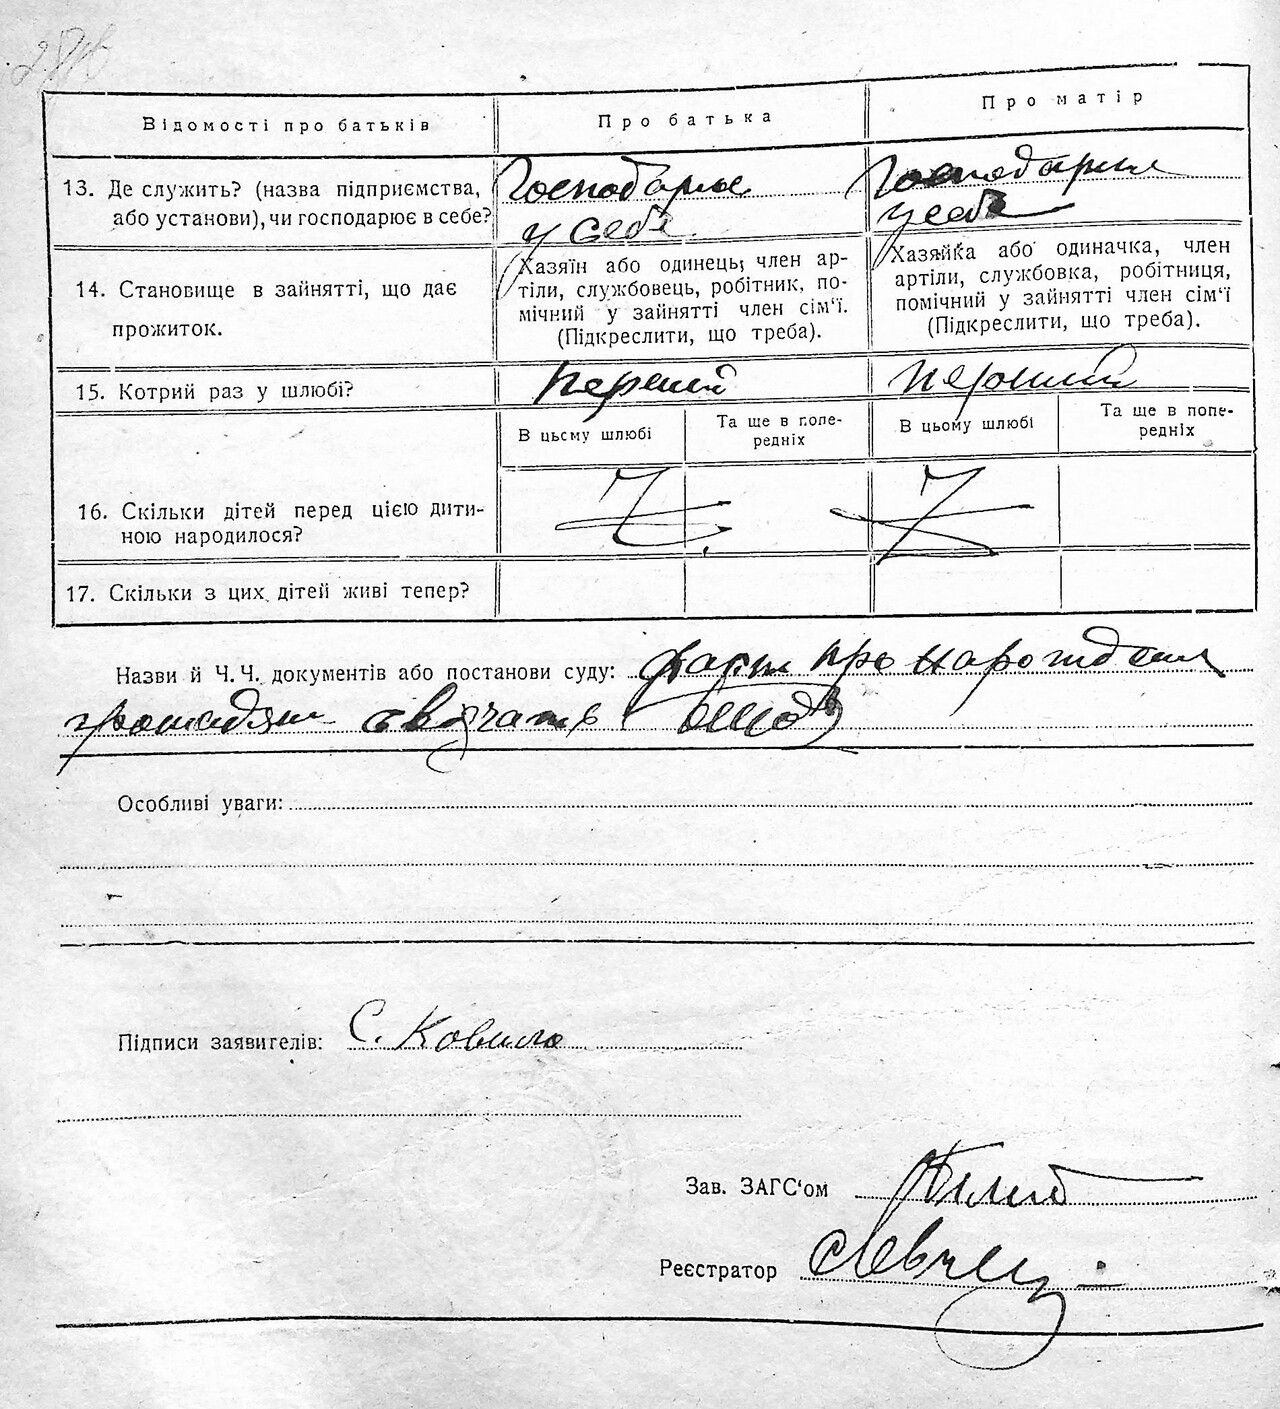 Відомості про батьків
Про батька
Про матір
13. Де служить? (назва підприємства,
або установи), чи господарює в себе?
Господарює
у себе
Господарює
у себе
14. Становище в зайнятті, що дає
прожиток.
Хазяїн або одинець, член ар-
тіли, службовець, робітник, по-
мічний у зайнятті член сім'ї.
(Підкреслити, що треба).
Хазяйка або одиначка, член
артіли, службовка, робітниця,
помічний у зайнятті член сім'ї
(Підкреслити, що треба).
15. Котрий раз у шлюбі?
перший
перший
В цьсму шлюбі
Та ще в попе-
редніх
В цьому шлюбі
Та ще в попе-
редніх
16. Скільки дітей перед цією дити-
ною народилося?
17. Скільки з цих дітей живі тепер?
Назви й Ч.Ч. документів або постанови суду: про народження
громадян свідчать
Особливі уваги:
Підписи заявителів: С. Ковило
Зав. ЗАГС'ом
Реєстратор